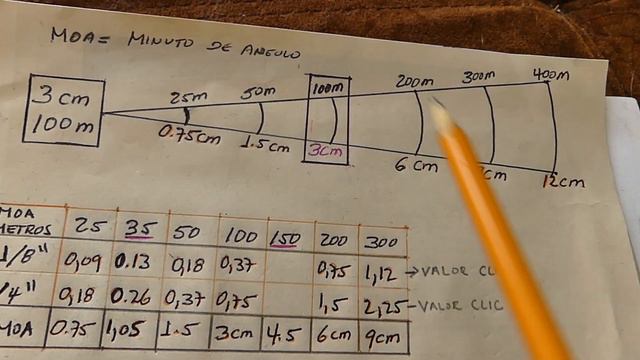 MOA = MINUTO DE ANGULO
3 cm
100 m
25m 50m 100m 200m 300m 400m
0.75cm 1.5cm 3cm 6cm cm 12cm
MOA
METROS 25 35 50 100 150 200 300
1/8" 0,09 0.13 0,18 0,37 0,75 1,12 → VALOR
1/4" 0,18 0.26 0,37 0,75 1,5 2,25 - VALOR CLIC
MOA 0.75 1,05 1.5 3cm 4.5 6cm 9cm